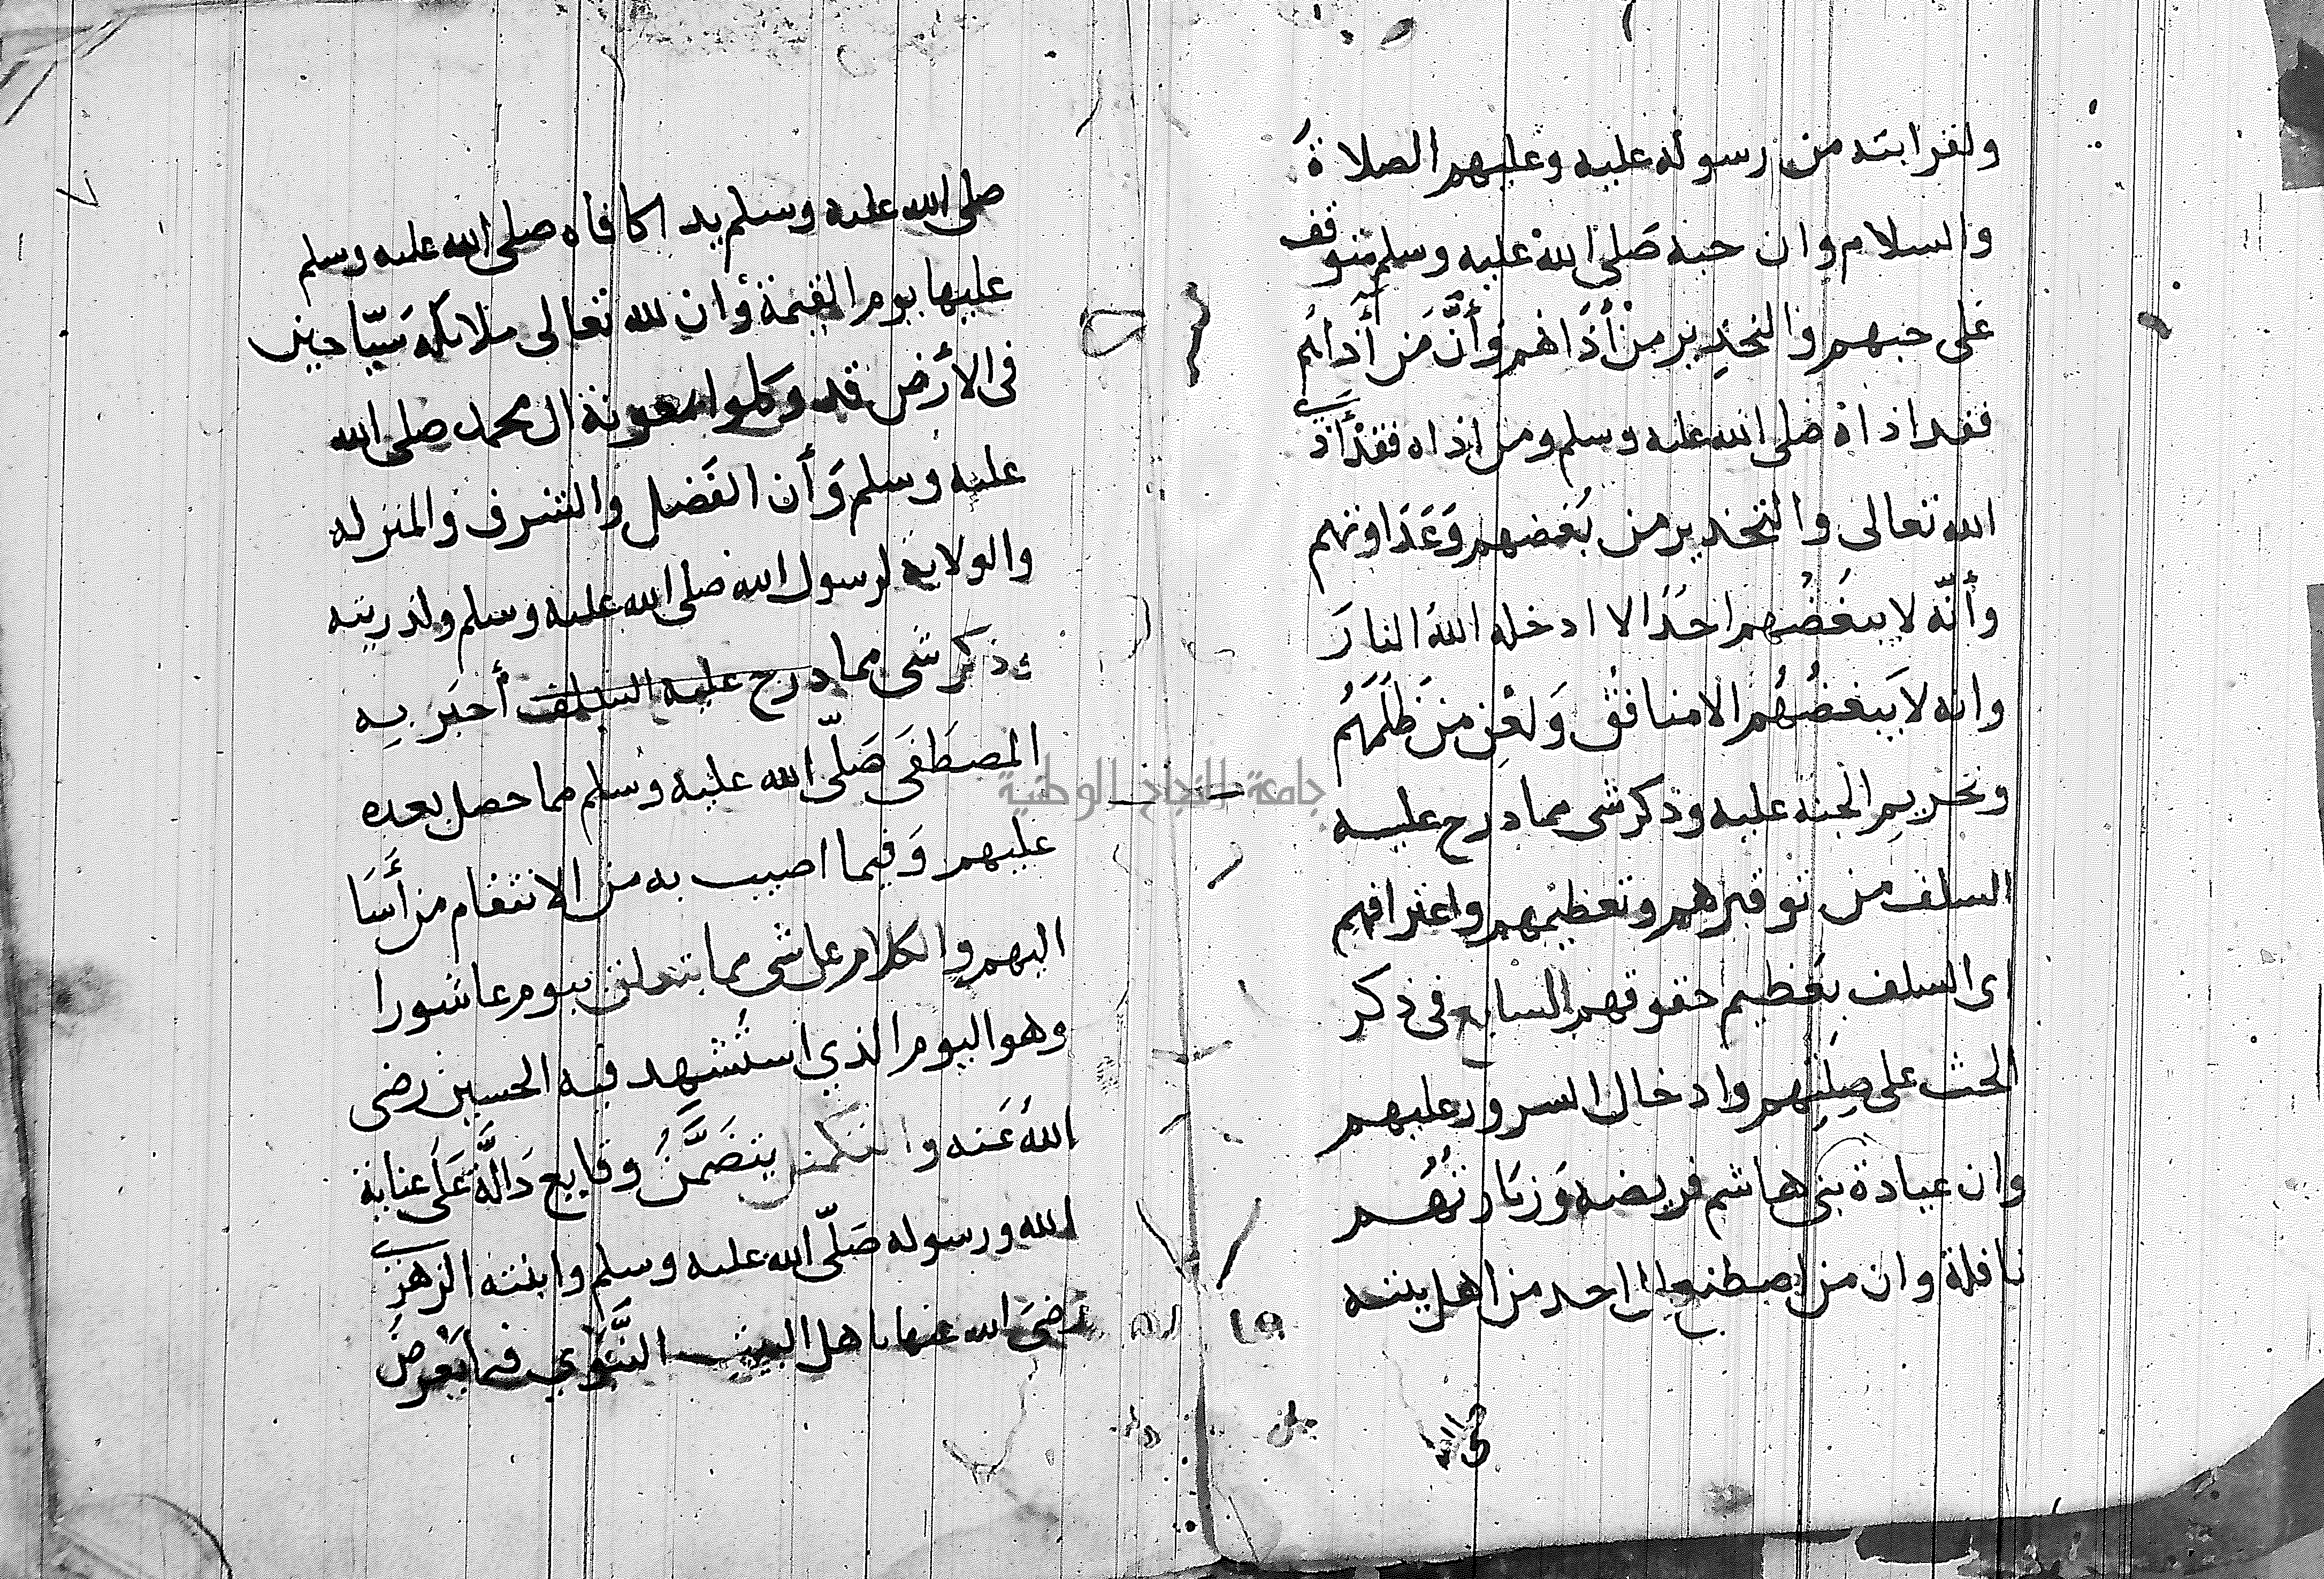 ولقرابته من رسوله عليه وعليهم الصلاةُ
والسلام وان حبه صَلى اللهُ عليه وسلم متوقف
عَلى حبهم والتحذِير مِنْ أَذَاهم وَأَنَّ مَن أَذاهُم
فقد اذاهُ صَلى الله عليه وسلم ومن اذاه فقد أذى
الله تعالى والتحذير من بُغضهم وَعَدَاوتهم
وَأنّه لا يبغَضُهم احَدَ الا ادخله اللهُ النارَ
وانه لا يَبغضُهُم الا منافق وَلعْن من ظَلَمَهُم
وتحريمِ الجنه عليه وذكر شى مما درج عليه
السلف من توقيرهم وتعظيمهم واعترافهم
اى السلف بعَظيم حقوقهم السابع فى ذكر
الحث على صِلَتِهم وادخال السرور عليهم
وان عيادة بنى هاشم فريضه وَزيَارتُهُم
نافلة وان من اصطنع الى احد من اهل بيته
صلى الله عليه وسلم يدا كافاه صلى الله عليه وسلم
عليها يوم القيمة وان لله تعالى ملائكة سَيّاحين
فى الأرض قد وكلوا بمعونة ال محمد صلى الله
عليه وسلم وَأن الفَضل والشرف والمنزله
والولايه لرسول الله صلى الله عليه وسلم ولذريته
ذكر شى مما درج عليه السلف أخبَر بِه
المصطَفَى صَلّى الله عليه وسلم مما حصل بعده
عليهم وَفيما اصيب به من الانتقام من أَسَا
اليهم والكلام على شى مما يتعلق بيوم عاشورا
وهو اليوم الذي استُشهد فيه الحسين رضى
اللهُ عَنه والتكميل يتضَمَّنُ وقايع دَالَّة عَلَى عناية
الله ورسوله صَلّى الله عليه وسلم وابنته الزهرى
رضىَ الله عنها باهل البيت النَّبَوي فيما يَعْرض
جامعة النجاح الوطنية